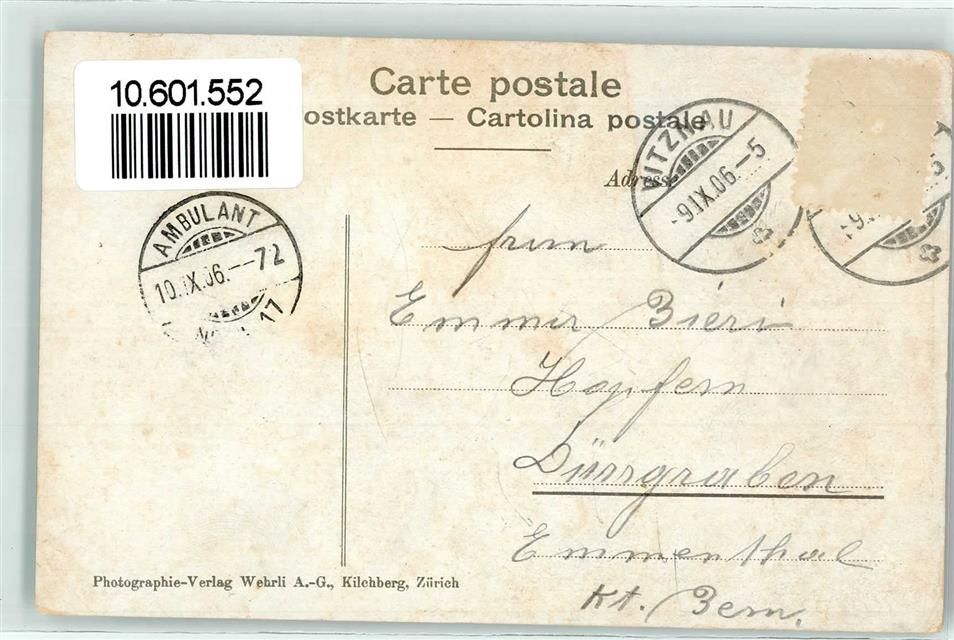 10.601.552
Carte postale
ostkarte — Cartolina postale
Adress
VITZNAU
-9.IX.06.-5
AMBULANT
10.IX.06.--72
Emmir Bieri
Hopfern
Dürrgraben
Emmenthal
Kt. Bern.
Photographie-Verlag Wehrli A.-G., Kilchberg, Zürich